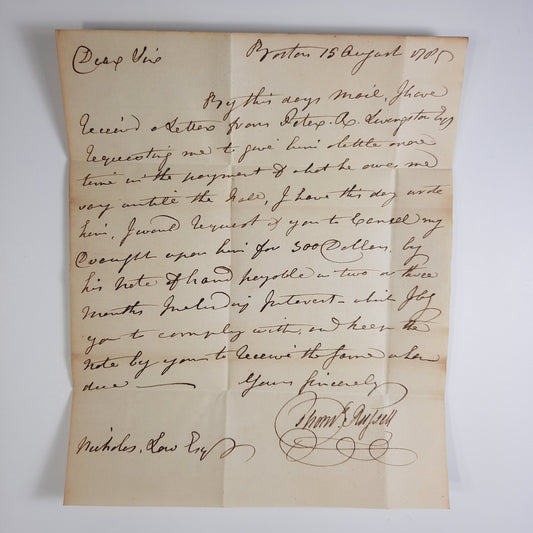 Dear Sir Boston 15 August 1785
By this days mail, I have
Receiv'd a Letter from Peter. R. Livingston Esq
requesting me to give him a little more
time in the payment of what he owes me
say untill the Fall, I have this day wrote
him, I would request of you to Cancel my
Draught upon him for 300 Dollars, by
his Note of hand payable in two or three
months Includ'g Interest - which I beg
you to comply with, and keep the
Note by you to receive the same when
due
Yours Sincerely
Thoms. Russell
Nicholas, Low Esqr